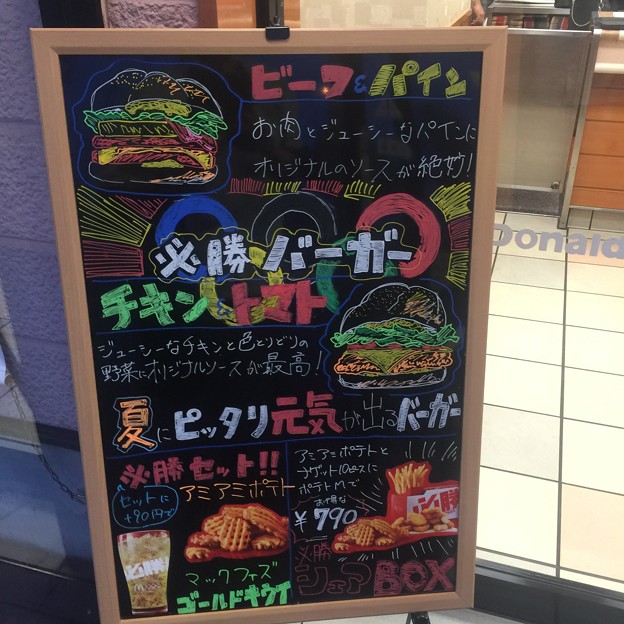 ビーフ&パイン
お肉とジューシーなパインに
オリジナルのソースが絶妙!
必勝バーガー
チキン&トマト
ジューシーなチキンと色とりどりの
野菜にオリジナルソースが最高!
夏にピッタリ元気が出るバーガー
必勝セット!!
セットに
+90円で
アミアミポテト
マックフィズ
ゴールドキウイ
アミアミポテトと
ナゲット10ピースに
ポテトMで
お得な
¥790
必勝
シェアBOX
必勝
必勝
Donald